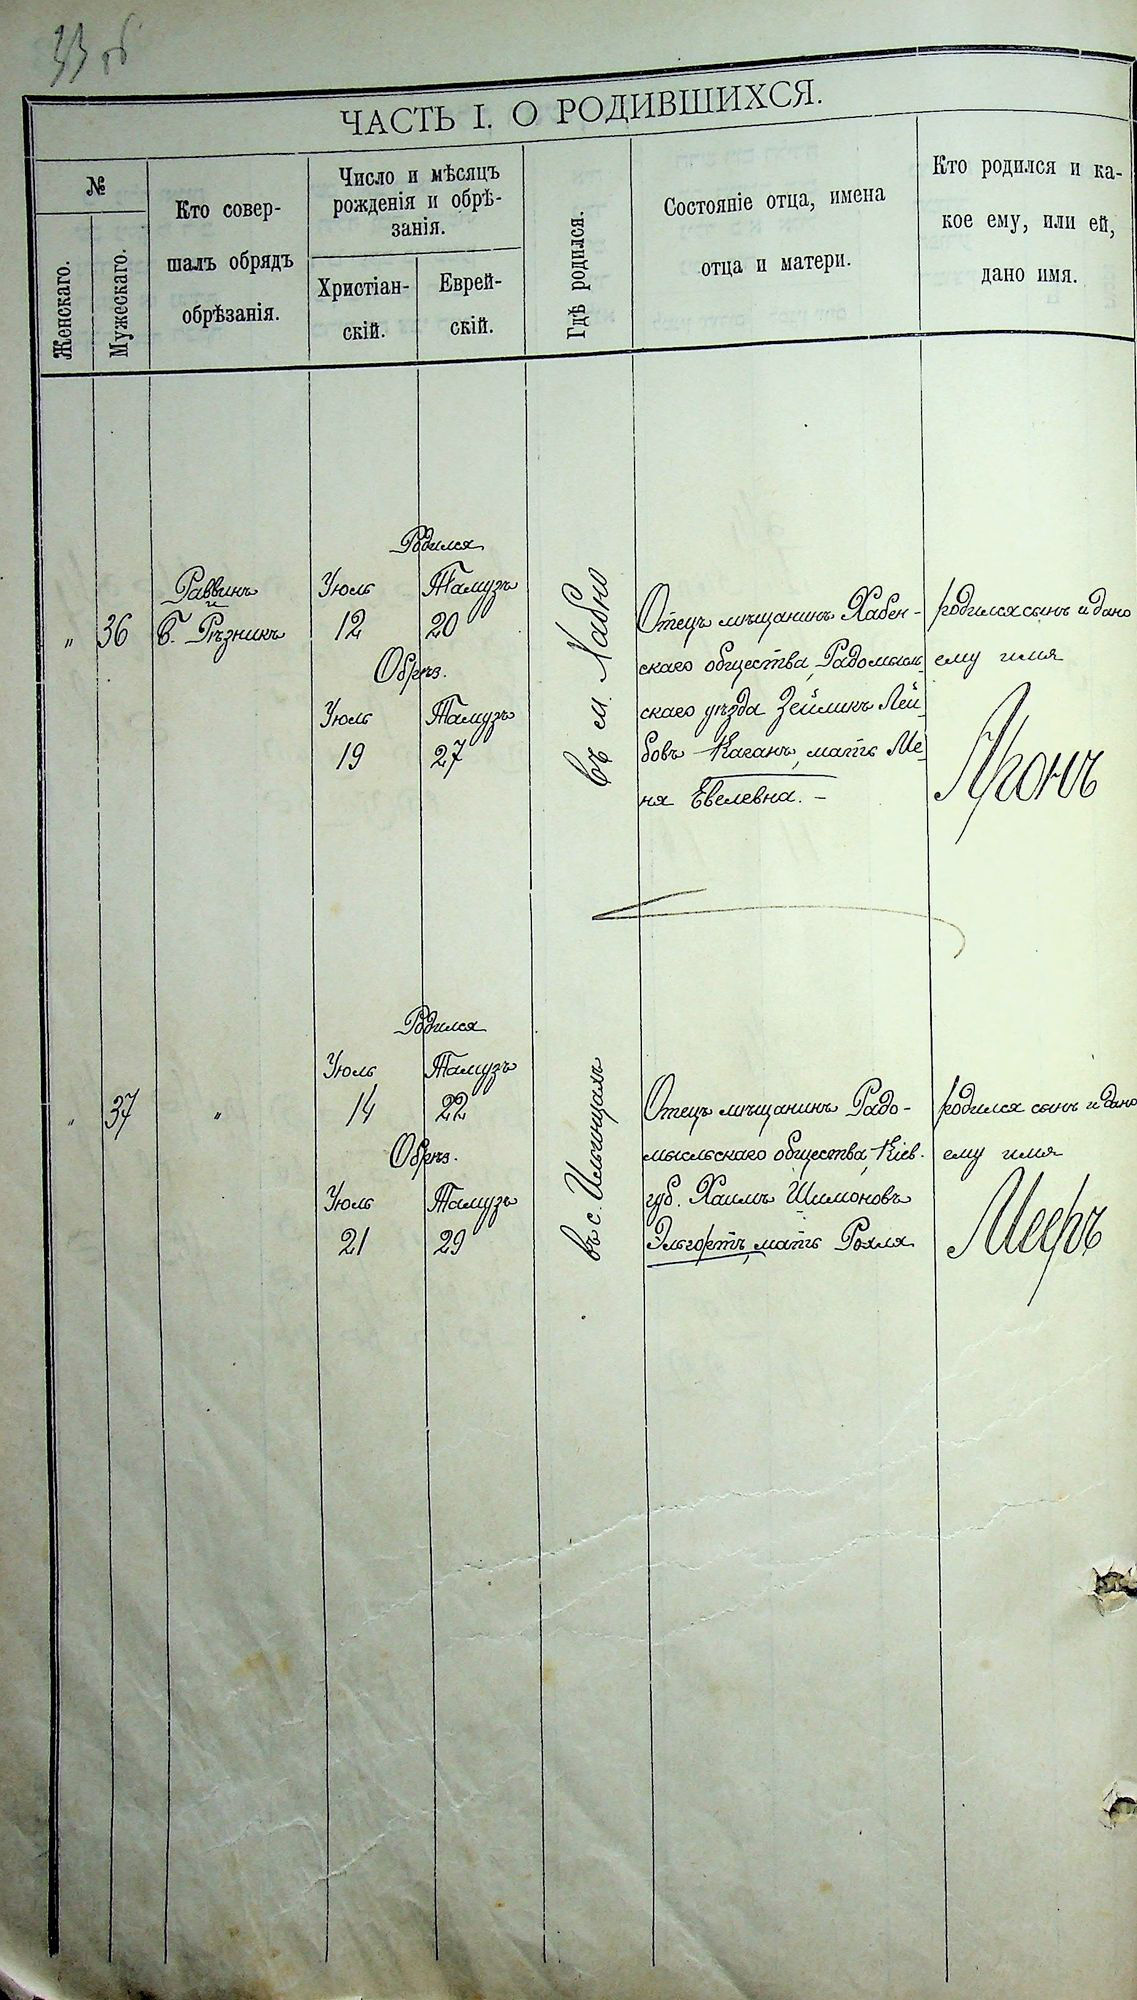 33 об
ЧАСТЬ I. О РОДИВШИХСЯ.
№
Женскаго.
Мужескаго.
Кто совер-
шалъ обрядъ
обрѣзанія.
Число и мѣсяцъ
рожденія и обрѣ-
занія.
Христіан-
скій.
Еврей-
скій.
Гдѣ родился.
Состояніе отца, имена
отца и матери.
Кто родился и ка-
кое ему, или ей,
дано имя.
"
36
Раввинъ
и
Б. Рѣзникъ
Родился
Іюль Тамузъ
12 20
Обрѣз.
Іюль Тамузъ
19 27
въ м. Хабно
Отецъ мѣщанинъ Хабен-
скаго общества, Радомысль-
скаго уѣзда Зейликъ Лей-
бовъ Каганъ, мать Ме-
ня Евелевна. –
родился сынъ и дано
ему имя
Аронъ
"
37
"
Родился
Іюль Тамузъ
14 22
Обрѣз.
Іюль Тамузъ
21 29
въ с. Ильинцахъ
Отецъ мѣщанинъ Радо-
мысльскаго общества, Кіев.
губ. Хаимъ Шимоновъ
Эльгортъ, мать Рохля
родился сынъ и дано
ему имя
Мееръ